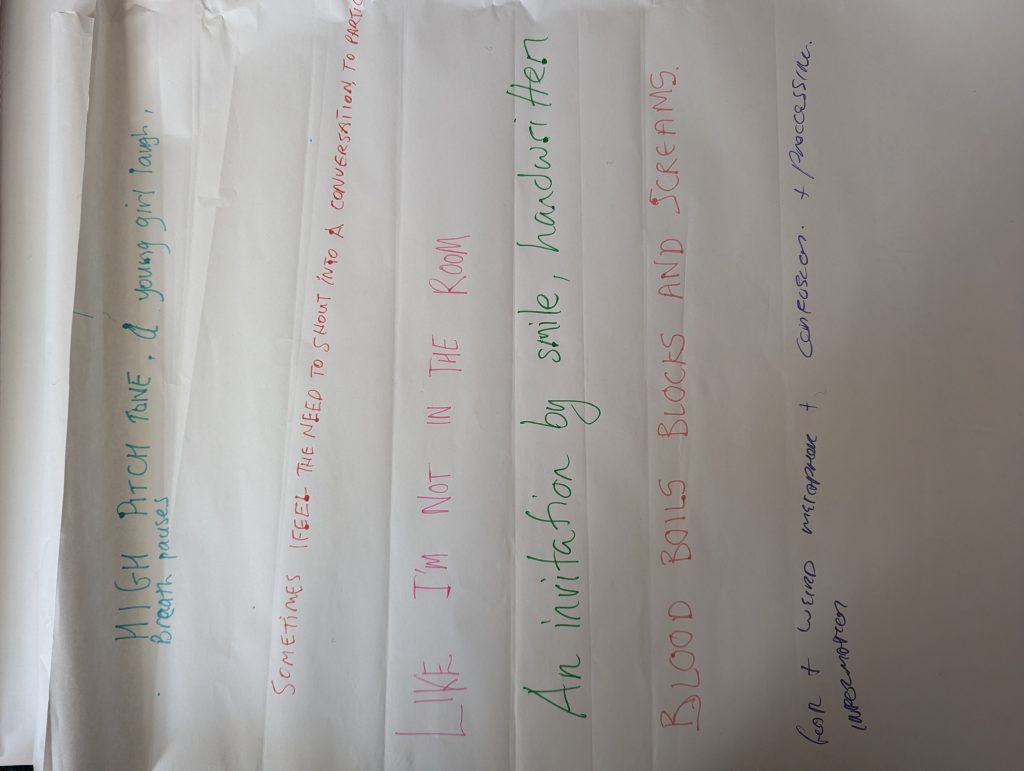 HIGH PITCH TONE. a young girl laugh,
Breath pauses
SOMETIMES I FEEL THE NEED TO SHOUT INTO A CONVERSATION TO PARTIC
LIKE I'M NOT IN THE ROOM
An invitation by smile, handwritten
BLOOD BOILS BLOCKS AND SCREAMS.
fear + WEIRD METAPHORE + CONFUSION. + PROCCESSING.
INFORMATION